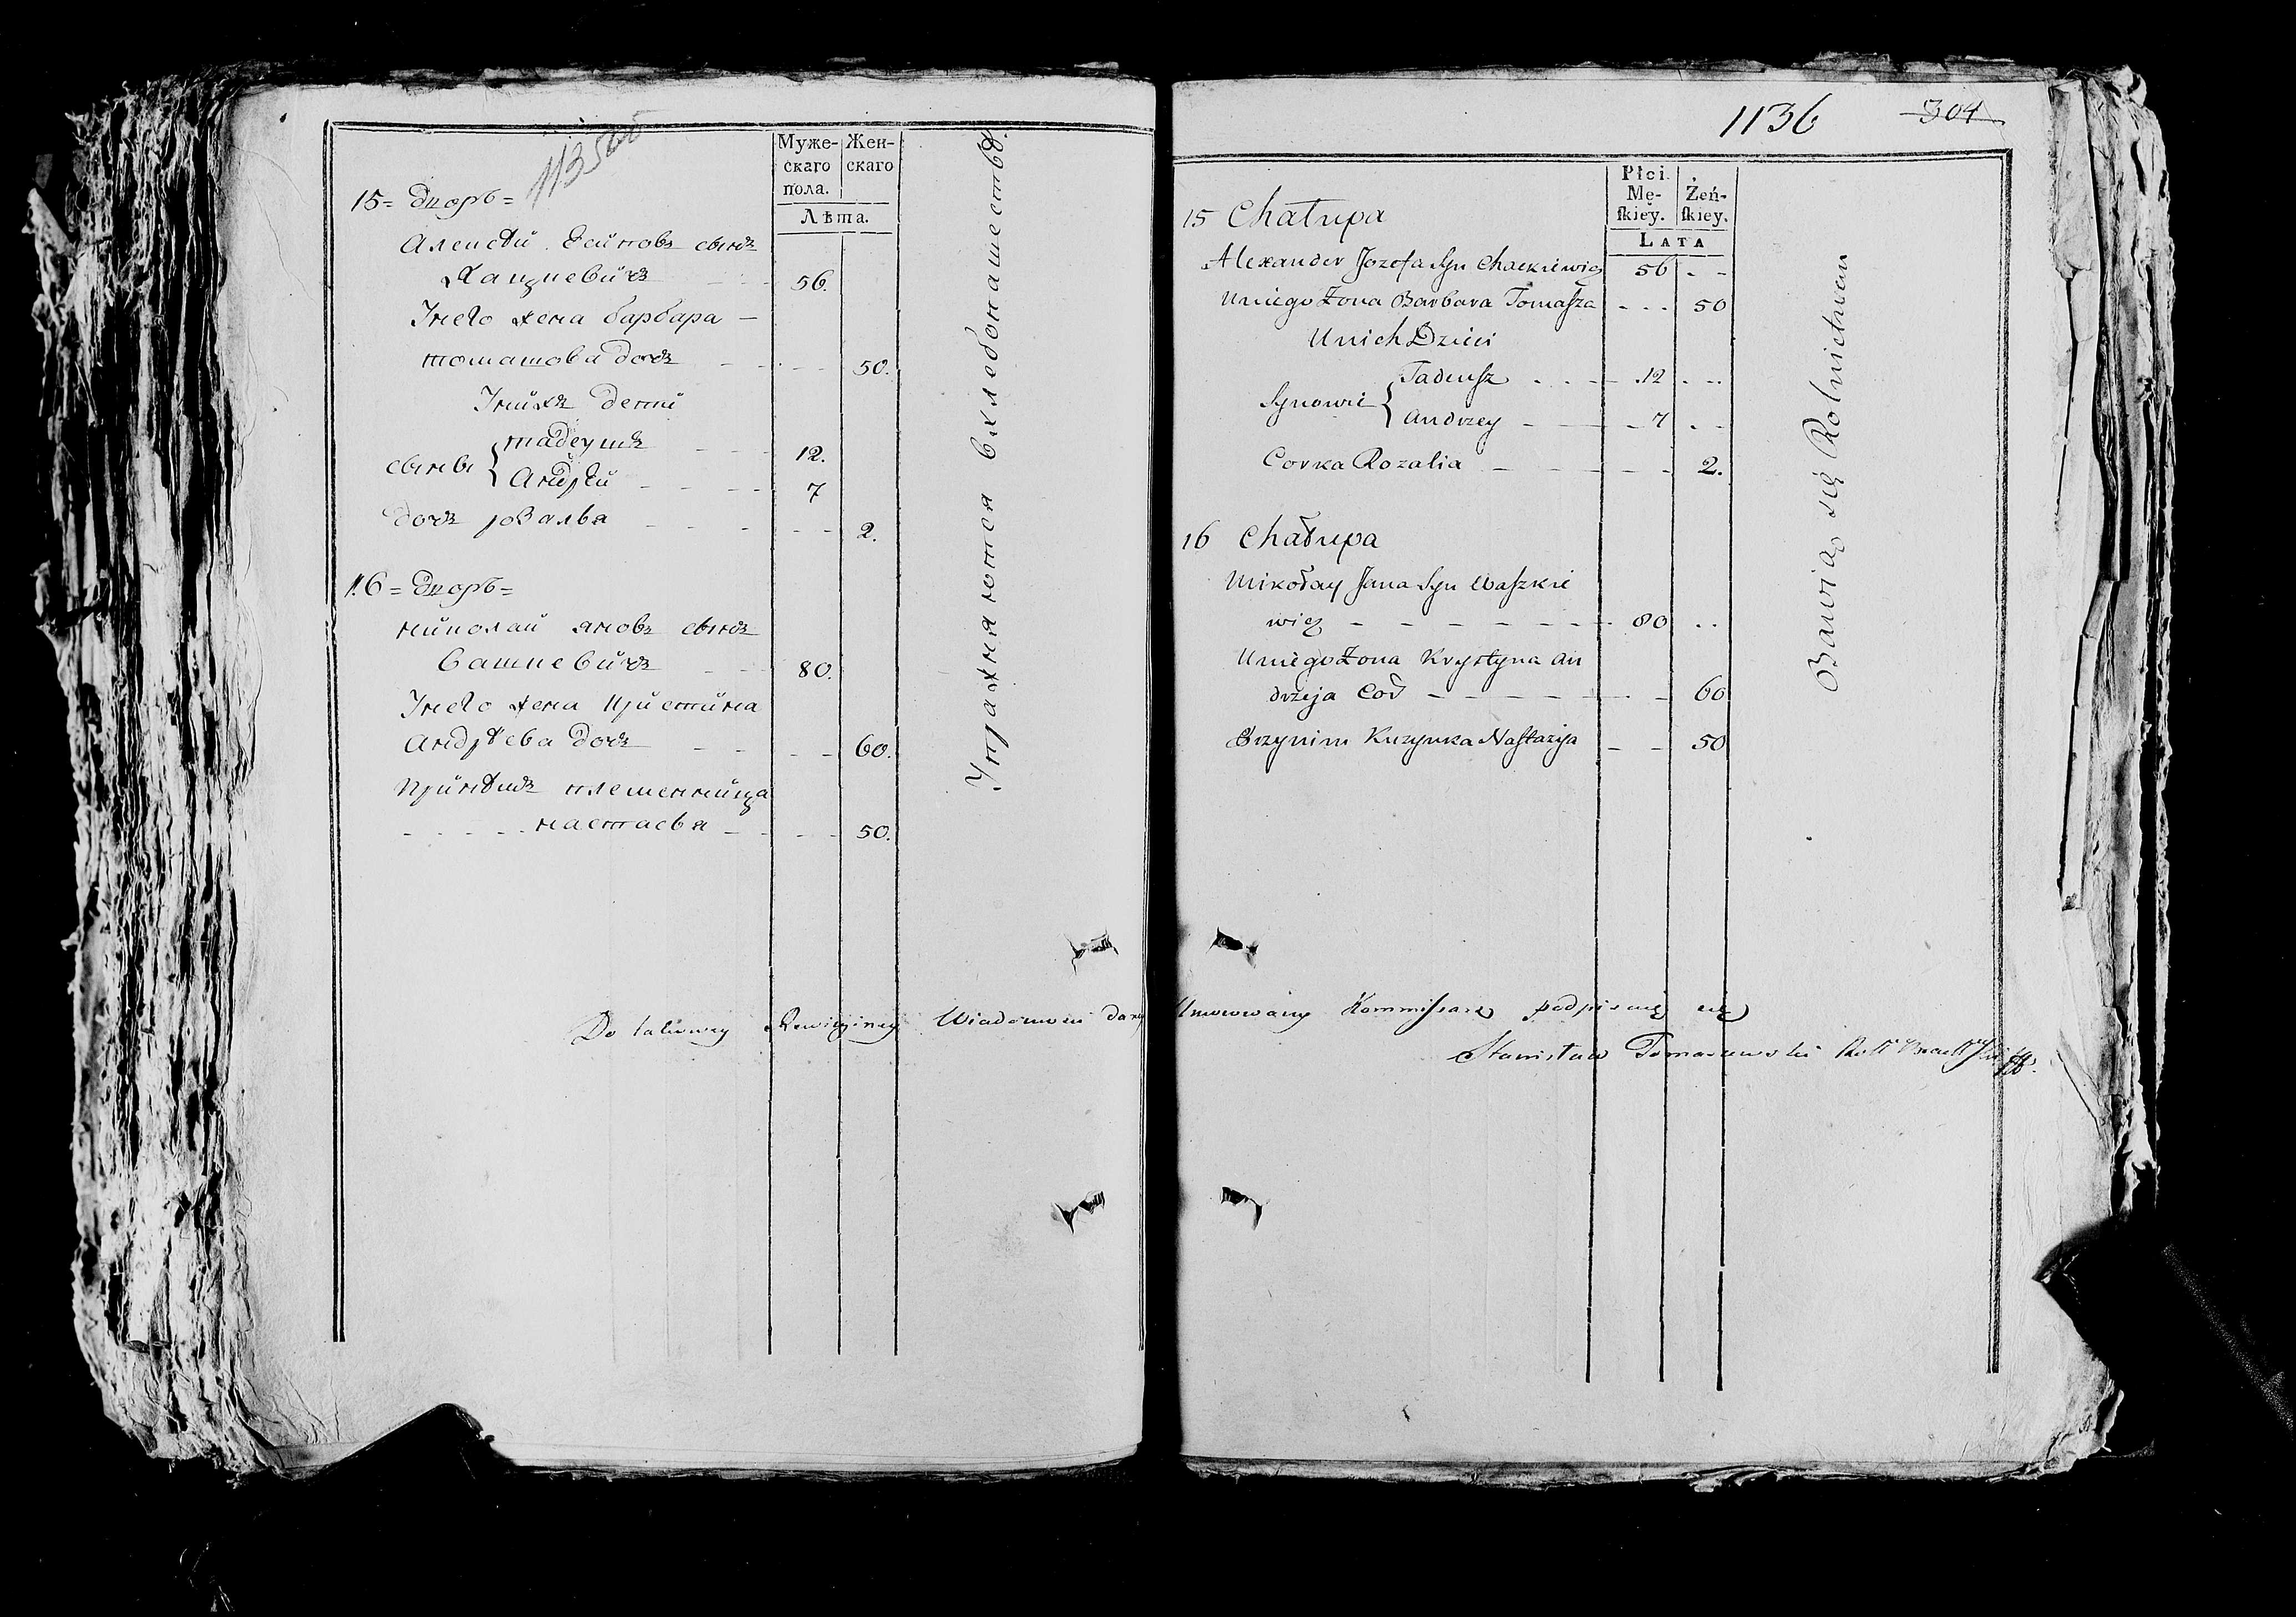 1135 об
Муже-
скаго
пола.
Жен-
скаго
Лѣта.
15= Дворъ=
Алексѣй Осиповъ сынъ
Хацкевичъ 56.
Унего жена барбара
томашова дочъ 50.
Унихъ дети
сыны { тадеушъ 12.
Андрѣй 7
дочъ розалья 2.
16= Дворъ=
николай яновъ сынъ
вашкевичъ 80.
Унего жена кристина
Андрѣева дочъ 60.
Принѣмъ племенница
настасья 50.
Упражняются в хлебопашествѣ.
1136
304
Płci
Mę-
skiey.
Żeń-
skiey.
LATA
15 Chałupa
Alexander Jozefa Syn Chackiewicz 56
Uniego Zona Barbara Tomasza 50
Unich Dzieci
Synowie { Tadeusz 12
Andrzey 7
Corka Rozalia 2.
16 Chałupa
Mikołay Jana Syn Waszkie
wicz 80
Uniego Zona Krystyna An
drzeja Cor 60
Przynim Kuzynka Nastazya 50
Bawią się Rolnictwem
Do takowey Rewizyiney Wiadomosci daney Umocowany Kommissarz podpisuię się
Stanisław Tomaszewski